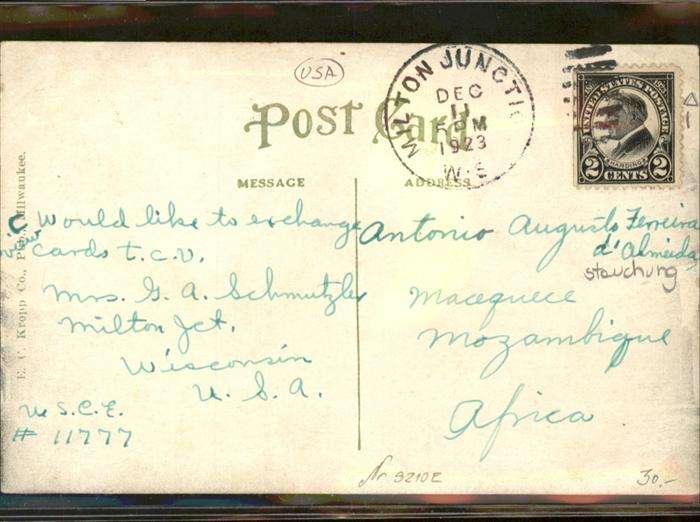 USA
MILTON JUNCTI
DEC
11
5 PM
1923
WIS
UNITED STATES POSTAGE
HARDING
2 CENTS 2
1
Post Card
MESSAGE
ADDRESS
E. C. Kropp Co., Pub., Milwaukee.
Would like to exchange
view cards t.c.v.
Mrs. G. A. Schmutzler
Milton Jct.
Wisconsin
U. S. A.
U.S.C.E.
# 11777
Antonio Augusto Ferreira
d'Almeida
stauchung
Macequece
Mozambique
Africa
Nr 9210E
30.-